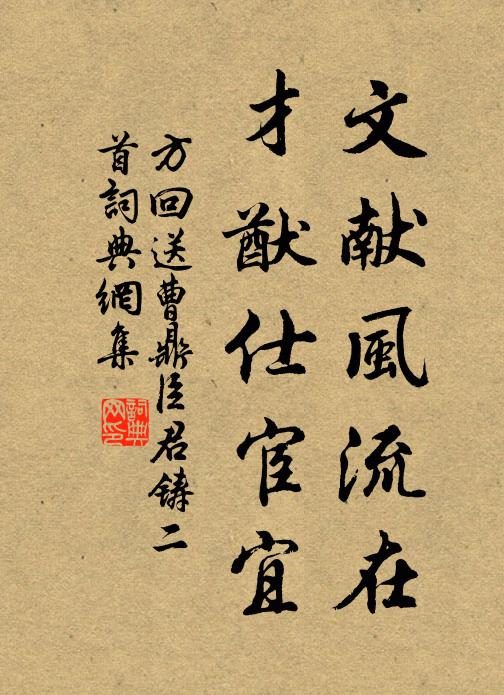 文献風流在
才猷仕宦宜
方回送曹鼎臣君鑄二
首詞典網集
詞典网印